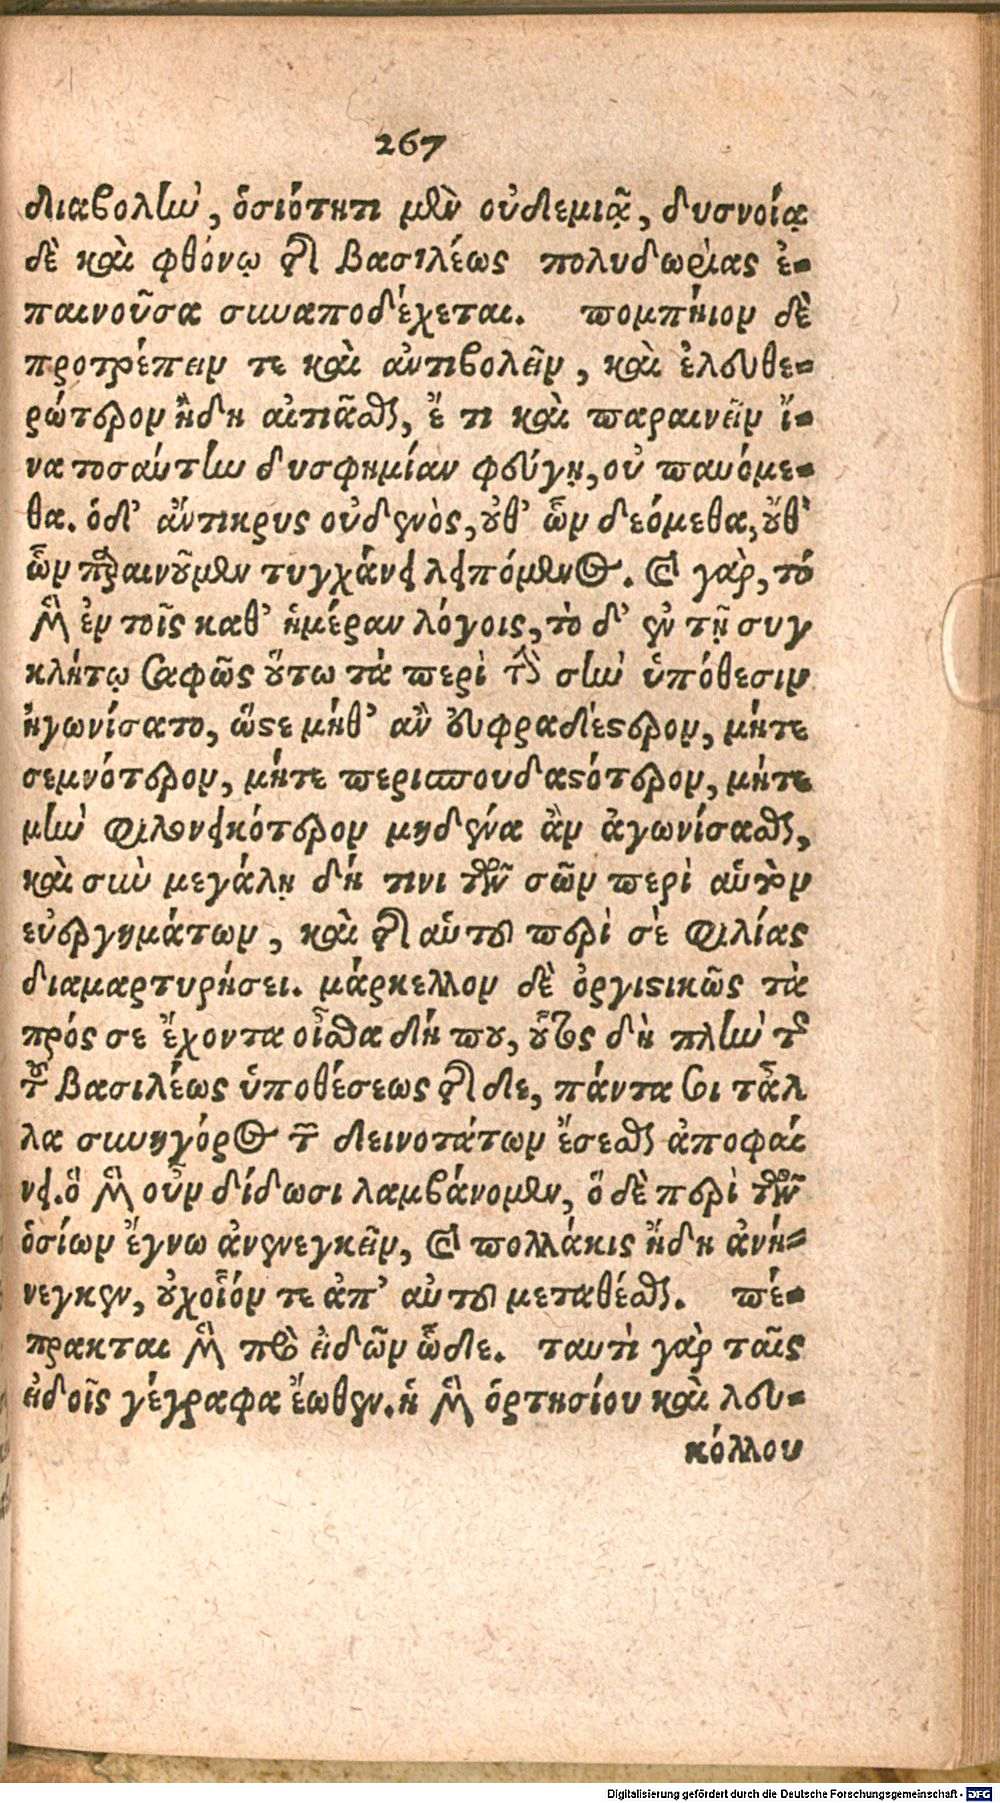 267
διαβολὴν, ὁσιότητι μὲν οὐδεμιᾷ, δυσνοίᾳ
δὲ καὶ φθόνῳ τῆς βασιλέως πολυδωρίας ἐ-
παινοῦσα συναποδέχεται. πομπήιον δὲ
προτρέπειν τε καὶ ἀντιβολεῖν, καὶ ἐλευθε-
ρώτερον ἤδη αἰτιᾶσθαι, ἔ τι καὶ παραινεῖν ἵ-
να τοσαύτην δυσφημίαν φεύγῃ, οὐ παυόμε-
θα. ὁδ' ἄντικρυς οὐδενὸς, οὐθ' ὧν δεόμεθα, οὔθ'
ὧν παραινοῦμεν τυγχάνει λειπόμενος. καὶ γὰρ, τό
μὲν ἐν τοῖς καθ' ἡμέραν λόγοις, τὸ δ' ἐν τῇ συγ
κλήτῳ σαφῶς οὕτω τὰ περὶ τὴν σὴν ὑπόθεσιν
ἠγωνίσατο, ὥστε μήθ' ἂν εὐφραδέστερον, μήτε
σεμνότερον, μήτε περισπουδαστότερον, μήτε
μὴν φιλονεικότερον μηδένα ἂν ἀγωνίσασθαι,
καὶ σὺν μεγάλῃ δή τινι τῶν σῶν περὶ αὑτὸν
εὐεργημάτων, καὶ τῆς αὑτοῦ περὶ σὲ φιλίας
διαμαρτυρήσει. μάρκελλον δὲ ὀργιστικῶς τὰ
πρός σε ἔχοντα οἶσθα δή που, οὗτος δὴ πλὴν τῆς
τοῦ βασιλέως ὑποθέσεως τῆς δε, πάντα σοι τἆλ
λα συνηγόρος τῶν δεινοτάτων ἔσεσθαι ἀποφαί
νει. ὃ μὲν οὖν δίδωσι λαμβάνομεν, ὃ δὲ περὶ τῶν
ὁσίων ἔγνω ἀνενεγκεῖν, καὶ πολλάκις ἤδη ἀνή-
νεγκεν, οὐχοἷόν τε ἀπ' αὐτοῦ μεταθέσθαι. πέ-
πρακται μὲν πρὸ εἰδῶν ὧδε. ταυτὶ γὰρ ταῖς
εἰδοῖς γέγραφα ἕωθεν. ἡ μὲν ὁρτησίου καὶ λευ-
κόλλου
Digitalisierung gefördert durch die Deutsche Forschungsgemeinschaft - DFG